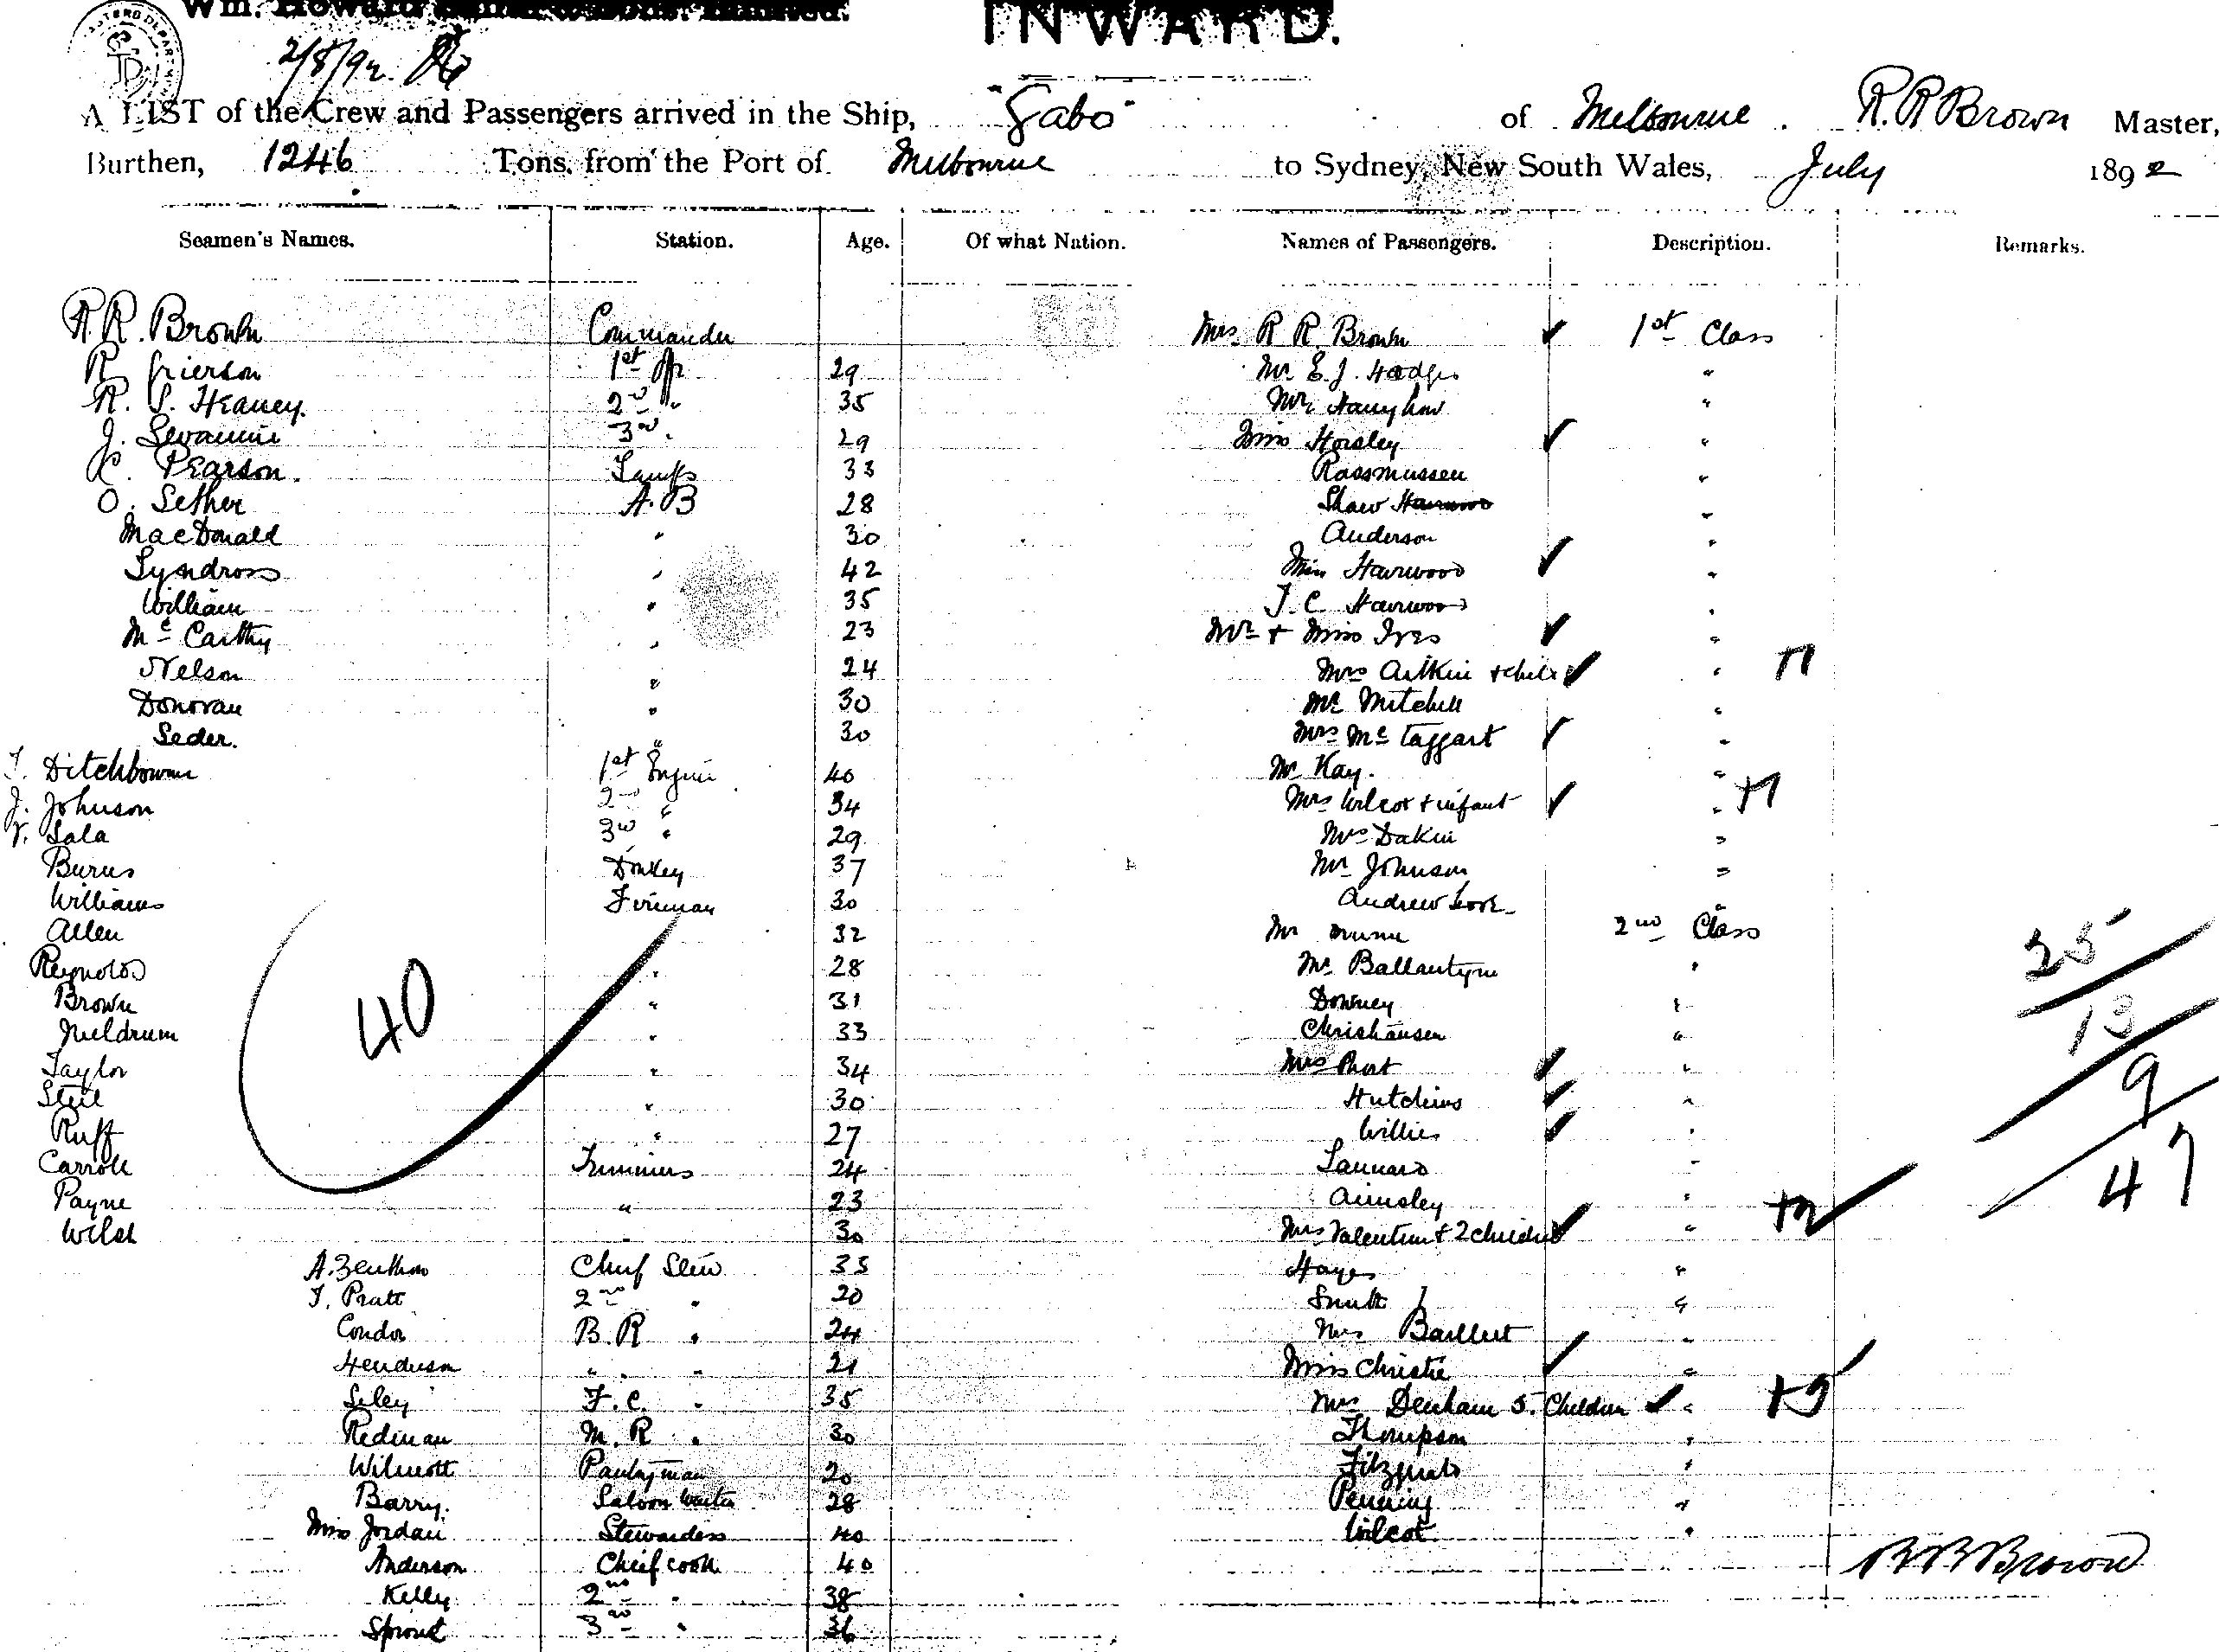 INWARD.
2/8/92
A LIST of the Crew and Passengers arrived in the Ship, "Gabo" of Melbourne. R.R Brown Master,
Burthen, 1246 Tons, from the Port of Melbourne to Sydney, New South Wales, July 1892
Seamen's Names. Station. Age. Of what Nation. Names of Passengers. Description. Remarks.
R.R. Brown Commander Mrs R R. Brown ✓ 1st Class
R. Grierson 1st Offr 29 Mr E.J. Hodges "
R. S. Heaney. 2nd " 35 Mr "
J. 3rd " 29 Miss Horsley ✓ "
C. Pearson. Lamps 33 Rassmussen "
O. Sether A.B 28 Shaw "
MacDonald " 30 Anderson "
Lyndross " 42 Miss Harwood ✓ "
William " 35 J.C Harwood "
Mc Carthy " 23 Mr + Miss Ives ✓ "
Nelson " 24 Mrs Aitkin + child ✓ " +1
Donovan " 30 Mr Mitchell "
Seder. " 30 Mrs Mc Taggart ✓ "
Ditchbourne 1st Engine 40 Mr Kay. "
J. Johnson 2nd " 34 Mrs Wilcox + infant ✓ " +1
Sala 3rd " 29 Dakin "
Burns Donkey 37 Mr Johnson "
Williams Fireman 30 Andrew "
Allen 32 Mr 2nd Class 25
Reynolds " 28 Mr Ballantyne "
Brown " 31 Downey " 13
Meldrum " 33 Christiansen "
Taylor " 34 Mrs ✓ " 9
Steel " 30 Hutchins ✓ "
Ruff " 27 Willis ✓ "
40
Carroll Trimmers 24 Lannard " 47
Payne " 23 Ainsley "
Welsh " 30 Mrs Valentine + 2 children ✓ " +2 ✓
A. Chief Stew 33 Hayes "
Pratt 2nd " 20 Smith "
Condor B.R " 24 "
Henderson " " 21 Miss Christie ✓ "
F.C. " 35 Mrs Denham 5. Children ✓ "
Redman M.R " 30 Thompson "
Wilmott Pantryman 20 Fitzgerald "
Barry. Saloon Waiter 28 "
Miss Jordan Stewardess 40 Wilcox "
Anderson Chief cook 40 R R Brown
Kelly 2nd " 38
Sproul 3rd " 36